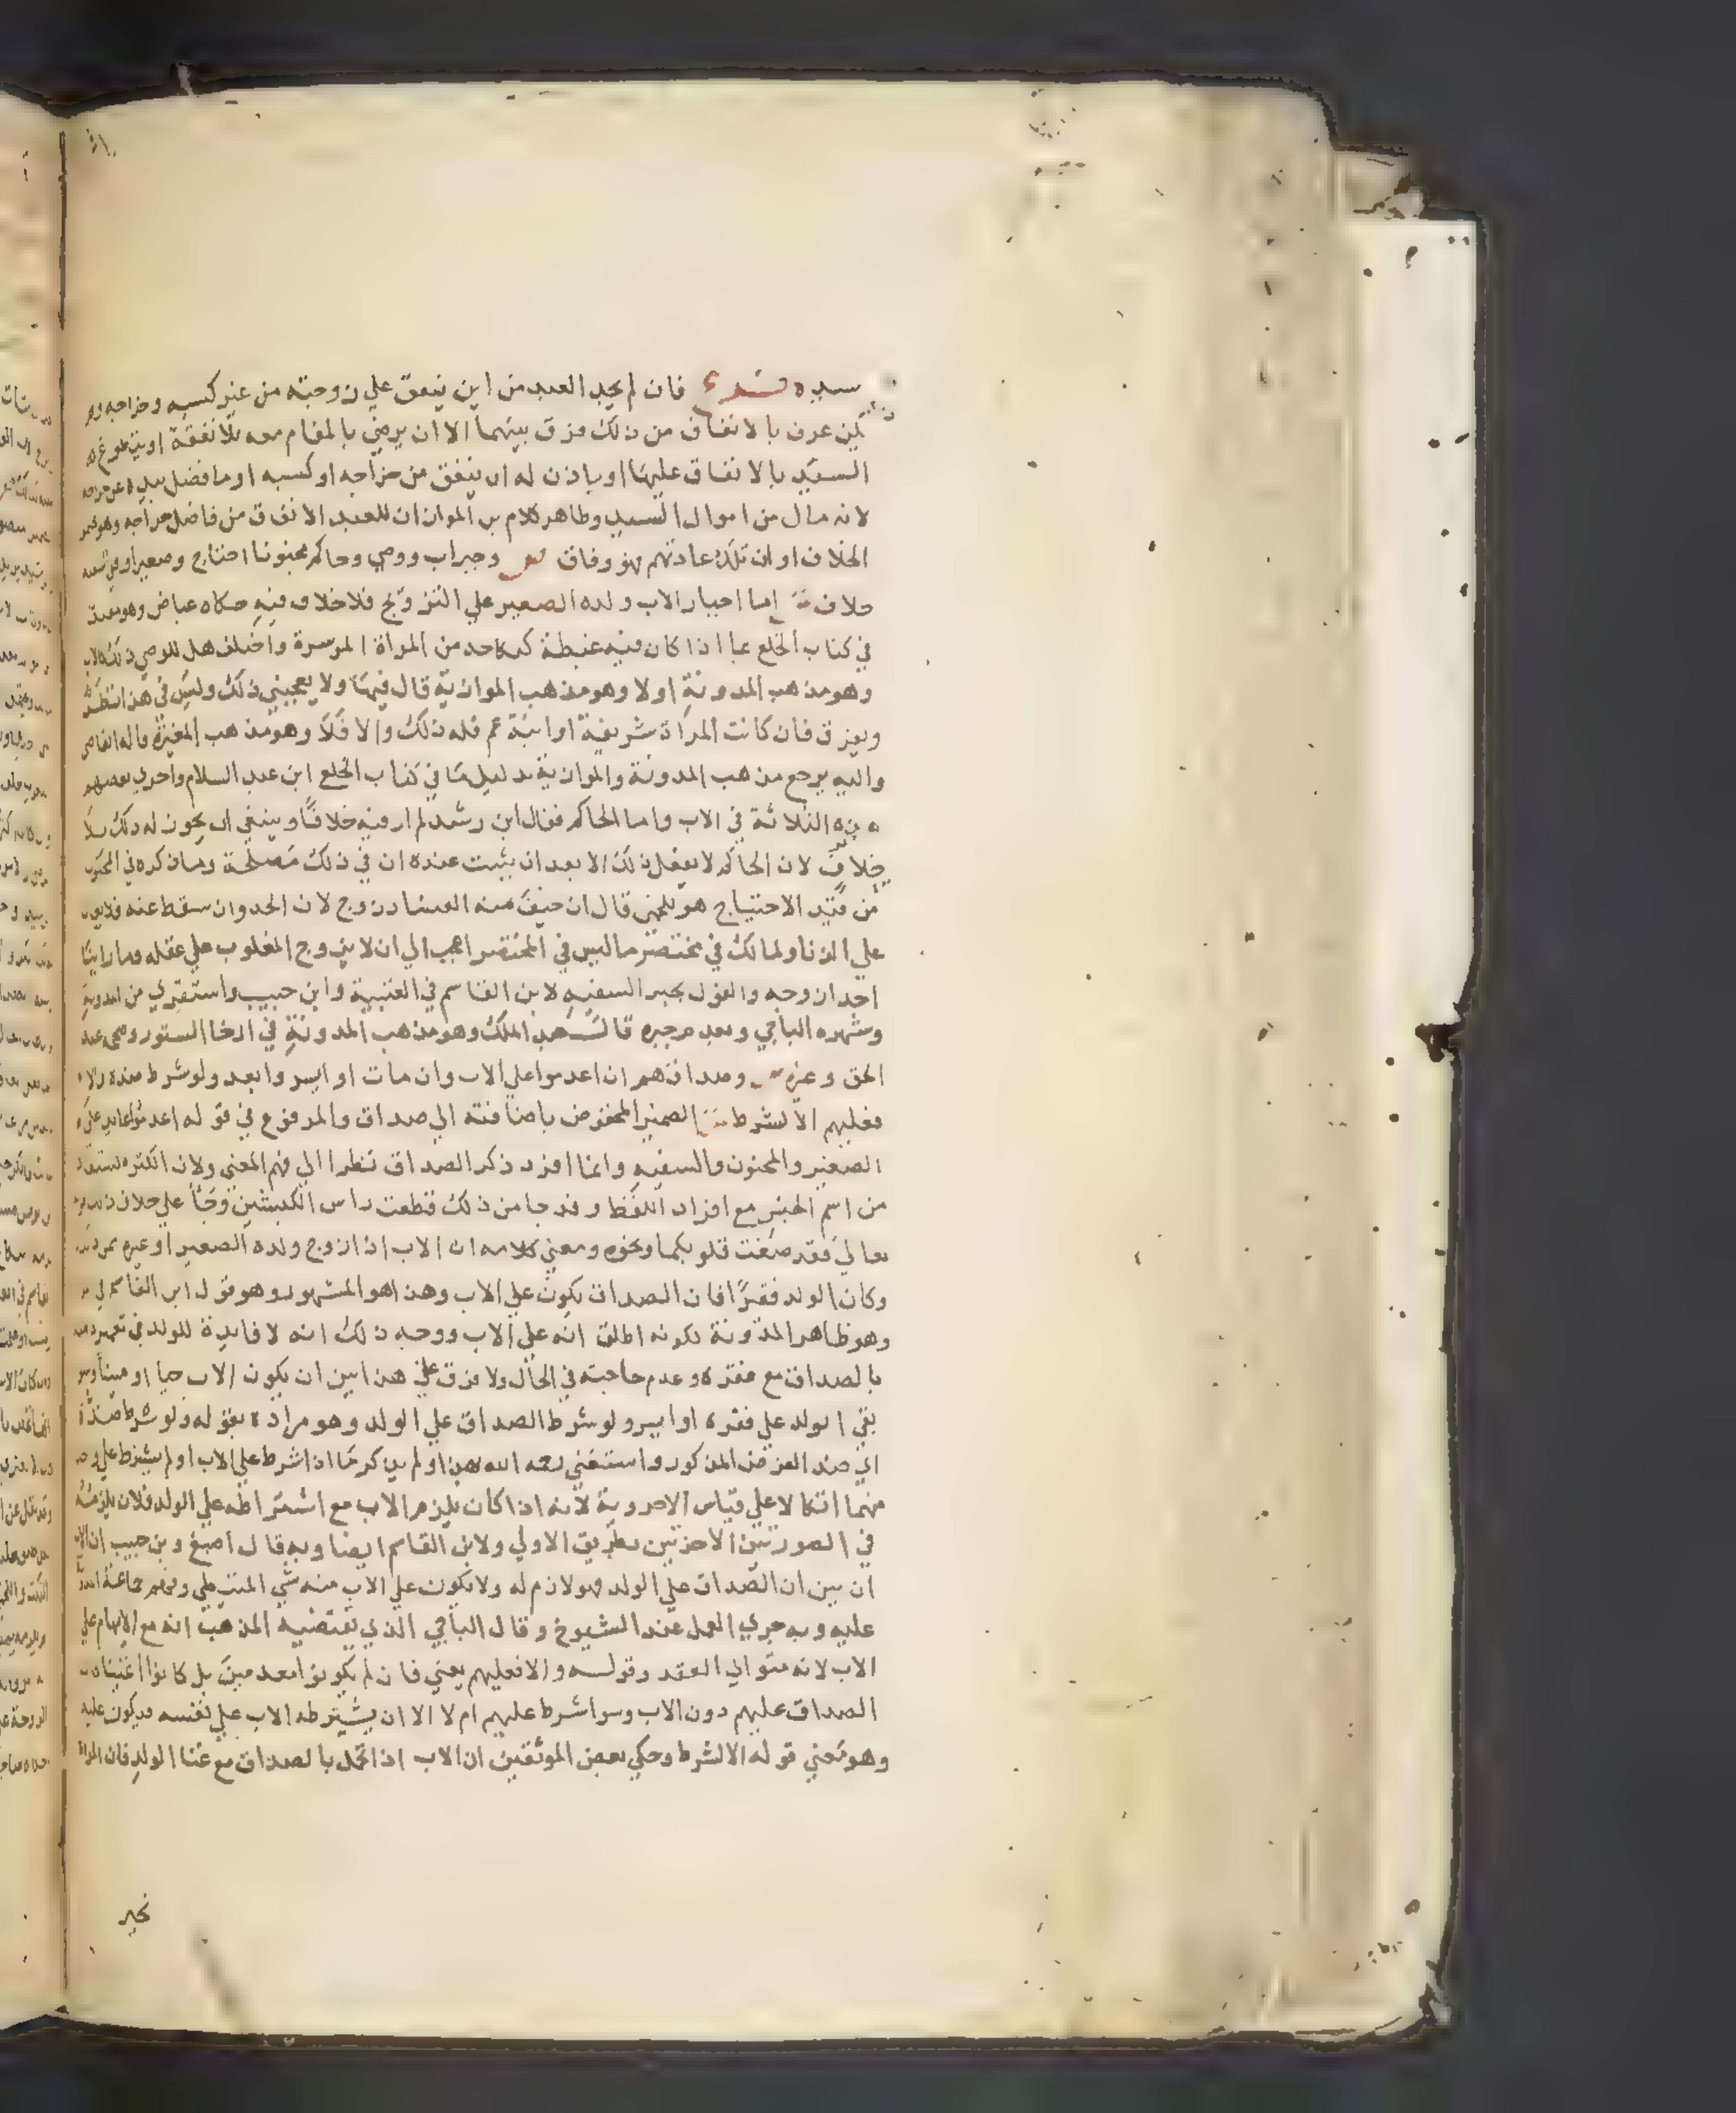 سيده فان لم يجد العبد من اين ينفق علي زوجته من غير كسبه وخراجه ولم
يكن عرف بالانفاق من ذلك فرق بينهما الا ان يرضي بالمقام معه بلا نفقة او يتطوع له
السيد بالانفاق عليها او ياذن له ان ينفق من خراجه او كسبه او ما فضل بيده عن خراجه
لانه مال من اموال السيد وظاهر كلام بن المواز ان للعبد الانفاق من فاضل خراجه وهو
الخلاف او ان تلك عادتهم فهو وفاق وجبر اب ووصي وحاكم مجنونا احتاج وصغيرا وفي السفيه
خلاف اما اجبار الاب ولده الصغير علي التزويج فلا خلاف فيه حكاه عياض وهو مقيد
في كتاب الخلع بما اذا كان فيه غبطة كنكاحه من المراة الموسرة واختلف هل للوصي ذلك كالاب
وهو مذهب المدونة اولا وهو مذهب الموازية قال فيها ولا يعجبني ذلك وليس في هذا نظر
ويفرق فان كانت المراة شريفة او ابنة عم فله ذلك والا فلا وهو مذهب المغيرة قاله القاضي
واليه يرجع مذهب المدونة والموازية بدليل ما في كتاب الخلع ابن عبد السلام واجري بعضهم
هذه الثلاثة في الاب واما الحاكم فقال ابن رشد لم ار فيه خلافا وينبغي ان يجوز له ذلك بلا
خلاف لان الحاكم لا يفعل ذلك الا بعد ان يثبت عنده ان في ذلك مصلحة وما ذكره في المجنون
من قيد الاحتياج هو للخمي قال ان خيف منه الفساد زوج لان الحد وان سقط عنه فلا يعان
علي الزنا ولمالك في مختصر ما ليس في المختصر احب الي ان لا يزوج المغلوب علي عقله وما راينا
احدا زوجه والقول بجبر السفيه لابن القاسم في العتبية وابن حبيب واستقري من المدونة
وشهره الباجي وبعدم جبره قال عبد الملك وهو مذهب المدونة في ارخا الستور وصححه عبد
الحق وغيره وصداقهم ان اعدموا علي الاب وان مات او ايسروا بعد ولو شرط ضده والا
فعليهم الا لشرط الضمير المخفوض باضافته الي صداق والمرفوع في قوله اعدموا عايد علي
الصغير والمجنون والسفيه وانما افرد ذكر الصداق نظرا الي فهم المعني ولان الكثرة تستفاد
من اسم الجنس مع افراد اللفظ وقد جا من ذلك قطعت راس الكبشين وجا علي خلاف ذلك قوله
تعالي فقد صغت قلوبكما ونحوه ومعني كلامه ان الاب اذا زوج ولده الصغير او غيره ممن ذكر
وكان الولد فقيرا فان الصداق يكون علي الاب وهذا هو المشهور وهو قول ابن القاسم
وهو ظاهر المدونة لكونه اطلق انه علي الاب ووجه ذلك انه لا فايدة للولد في تعمير ذمته
بالصداق مع فقره وعدم حاجته في الحال ولا فرق علي هذا بين ان يكون الاب حيا او ميتا وسوا
بقي الولد علي فقره او ايسر ولو شرط الصداق علي الولد وهو مراده بقوله ولو شرط ضده
اي ضد الفرض المذكور واستغني رحمه الله بهذا ولم يذكر ما اذا شرط علي الاب او لم يشترط علي واحد
منهما اتكالا علي قياس الاحروية لانه اذا كان يلزم الاب مع اشتراطه علي الولد فلان يلزمه
في الصورتين الاخرتين بطريق الاولي ولابن القاسم ايضا وبه قال اصبغ وبن حبيب ان الاب
ان بين ان الصداق علي الولد فهو لازم له ولا يكون علي الاب منه شي المتيطي وفقهم جماعة
عليه وبه جري العمل عند الشيوخ وقال الباجي الذي يقتضيه المذهب انه مع الابهام علي
الاب لانه متوالي العقد وقوله والا فعليهم يعني فان لم يكونوا معدمين بل كانوا اغنيا فان
الصداق عليهم دون الاب وسوا شرط عليهم ام لا الا ان يشترطه الاب علي نفسه فيكون عليه
وهو معني قوله الا لشرط وحكي بعض الموثقين ان الاب اذا تحمل بالصداق مع غنا الولد فان المراة
تخير